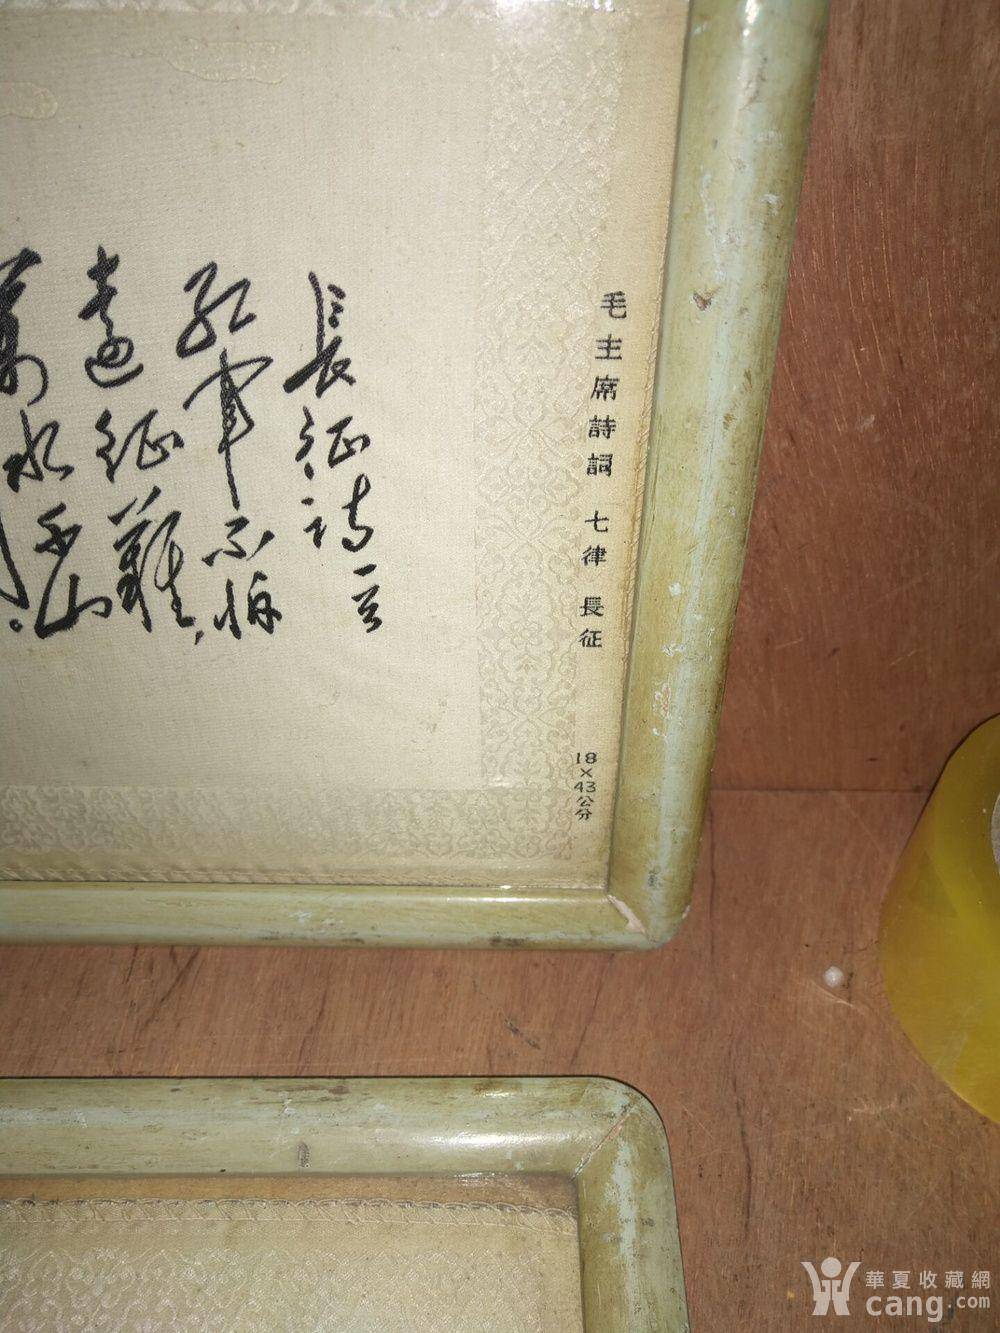 毛主席詩詞 七律 長征
18×43公分
長征詩一首
紅軍不怕
遠征難，
萬水千山
華夏收藏網
cang.com